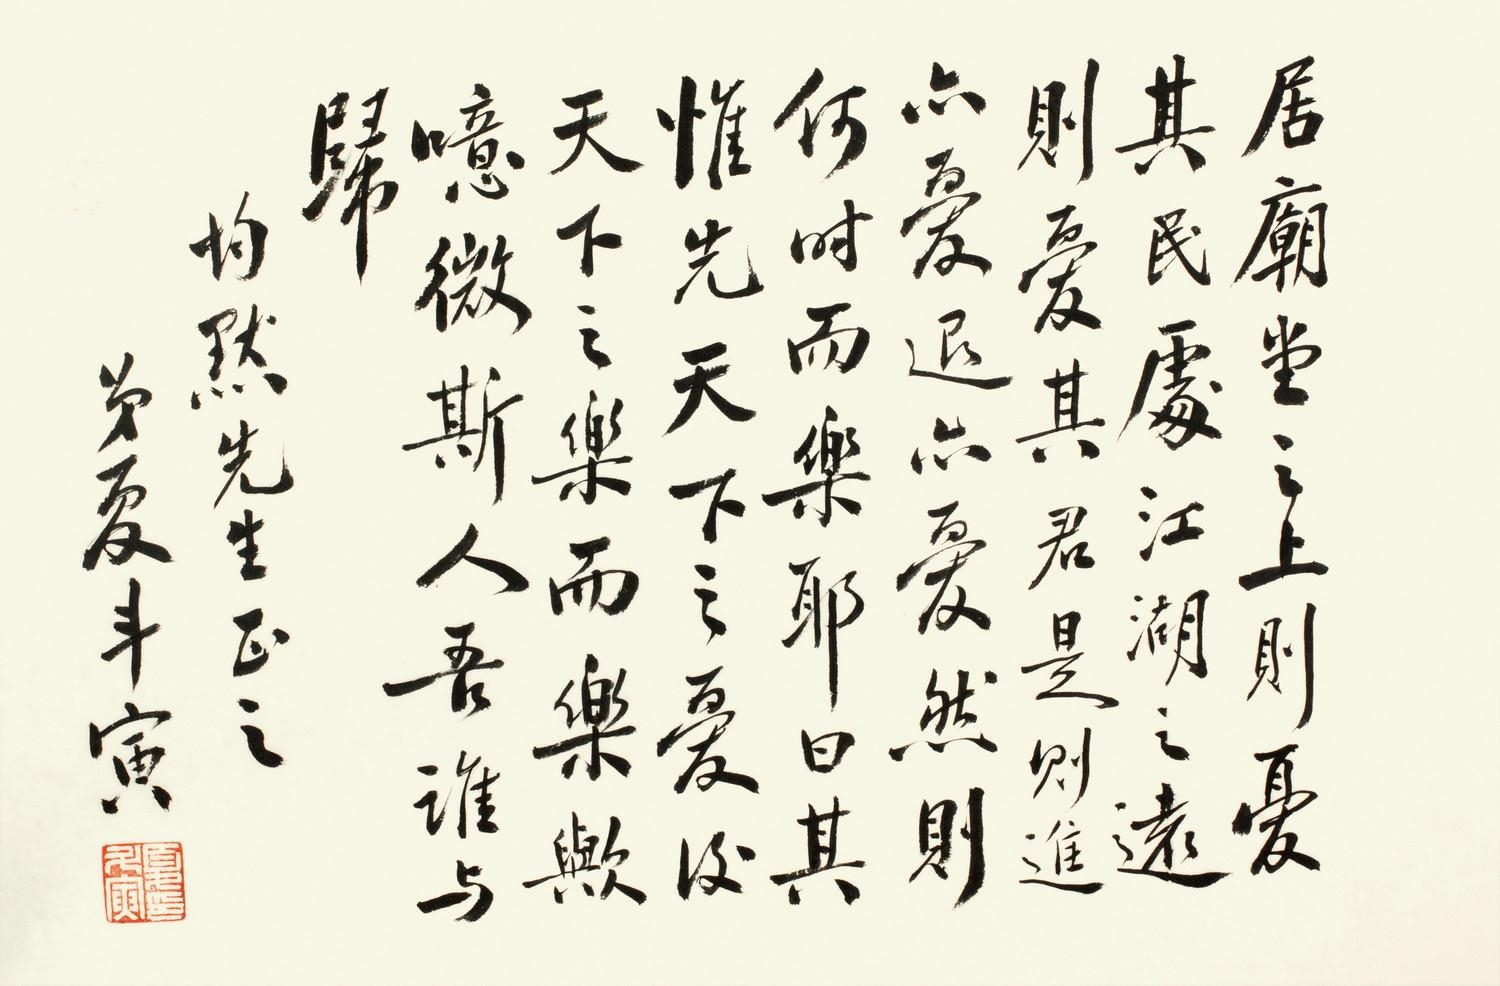 居廟堂之上則憂
其民處江湖之遠
則憂其君是則進
亦憂退亦憂然則
何时而樂耶曰其
惟先天下之憂後
天下之樂而樂歟
噫微斯人吾誰与
歸
均默先生正之
弟夏斗寅
夏斗寅印